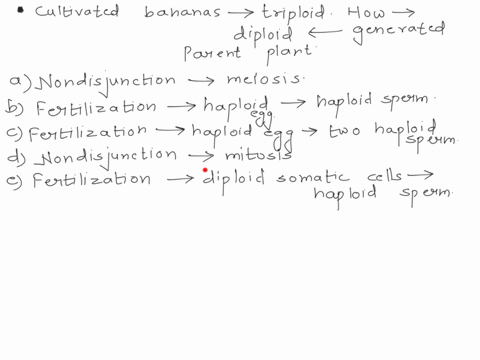 • Cultivated bananas → triploid. How →
diploid ← generated
Parent plant.
a) Nondisjunction → meiosis.
b) Fertilization → haploid egg → haploid sperm.
c) Fertilization → haploid egg → two haploid sperm.
d) Nondisjunction → mitosis
e) Fertilization → diploid somatic cells →
haploid sperm.